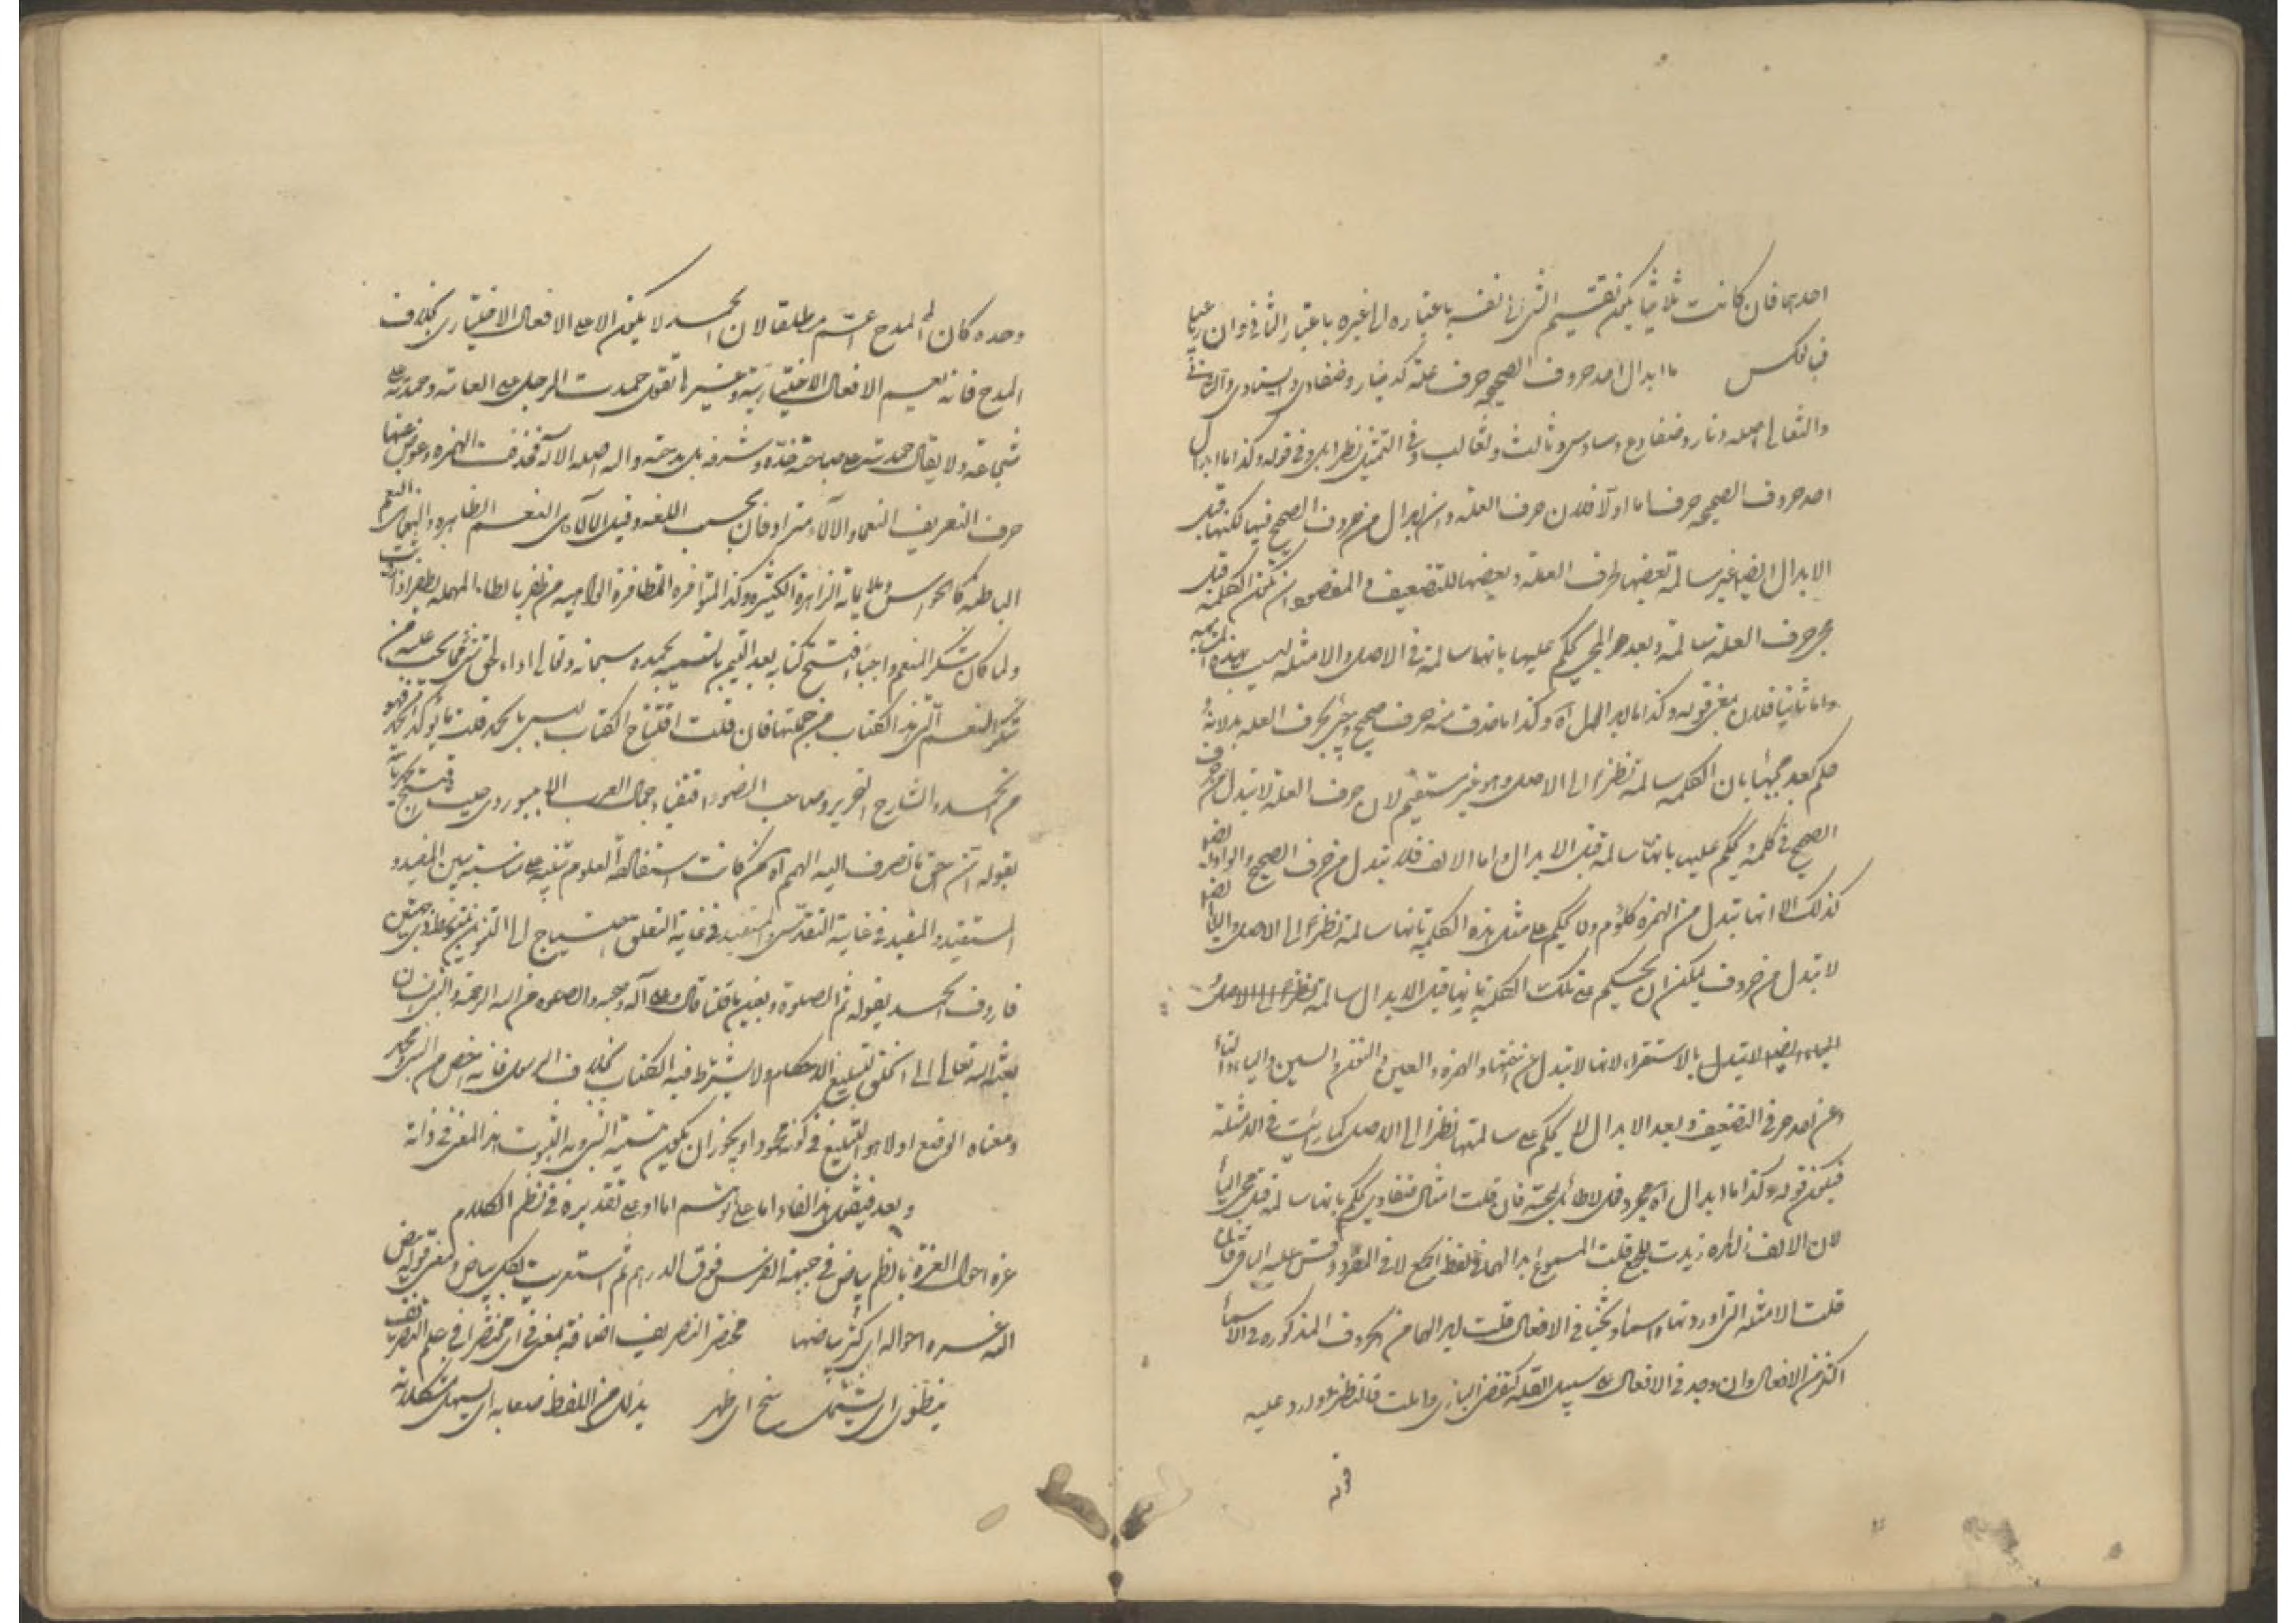 احدها فان كانت ثلاثيا يكون تقسيم الشئ الى نفسه باعتباره الى غيره باعتبار الثاني وان رباعيا
فبالعكس ما ابدال احد حروف الصحيحه حرف علة كدينار وضفادى والسادى والثالى
والثعالى اصله دنار وضفادع وسادس وثالث وثعالب وفى التمثيل نظر بل وفى قوله وكذا ما ابدال
احد حروف الصحيحه حرفا اما اولا فلان حرف العله وان ابدل من حروف الصحيح فيها لكنها قبل
الابدال ايضا غير سالمة بعضها بحرف العله وبعضها للتضعيف والمقصود ان تكون الكلمة قبل
مجئ حرف العلة سالمة وبعد المجئ يحكم عليها بانها سالمة فى الاصل والامثله ليست بهذه المثابه
واما ثانيا فلان معنى قوله وكذا ما ابدال اه وكذا ما حذف منه حرف صحيح وجئ بحرف العله بدلا منه
حكم بعد مجيئها بان الكلمه سالمة نظرا الى الاصل وهو غير مستقيم لان حرف العلة لا تبدل من حرف
الصحيح فى كلمة ويحكم عليها بانها سالمة قبل الابدال واما الالف فلا تبدل من حرف الصحيح والواو ايضا
كذلك الا انها تبدل من الهمزه كلؤم ولا يحكم على مثل هذه الكلمة بانها سالمة نظرا الى الاصل والياء ايضا
لا تبدل من حروف يمكن ان يحكم على تلك الكلمة بانها قبل الابدال سالمة نظرا الى الاصل
الياء ايضا لا تبدل بالاستقراء لانها لا تبدل عن اختها والهمزه والعين والنون والسين والباء والثاء
وعن احد حرفى التضعيف وبعد الابدال لا يحكم على سالمتها نظرا الى الاصل كما رايت فى الامثلة
فيكون قوله وكذا ما ابدال اه مجرد قول لا طائل تحته فان قلت امثال ضفادى يحكم بانها سالمة قبل مجئ الياء
لان الالف زائده زيدت للجمع قلت المسموع ابدالها فى لفظ الجمع لا فى المفرد وقس عليه الباقى فان
قلت الامثله التى اوردتها واسماء وبحثنا فى الافعال قلت ابدالها من الحروف المذكوره فى الاسماء
اكثر من الافعال وان وجد فى الافعال على سبيل القلة كتقضى البازى وامليت فالنظر وارد عليه
قوله
وحده كان المدح اعم مطلقا لان الحمد لا يكون الا على الافعال الاختيارى بخلاف
المدح فانه يعم الافعال الاختيارية وغيرها تقول حمدت الرجل على انعامه وحمدته على
شجاعته ولا يقال حمدته على صباحة خده ورشاقة قده بل مدحته واله اصله الالاه فحذفت الهمزه وعوض عنها
حرف التعريف النعماء والآلاء مترادفان بحسب اللغه وقيل الآلاء هى النعم الظاهره والنعماء هى النعم
الباطنه كالحواس وملايماته الزاهرة الكثيره وكذا المتوافره المتظافرة الوالهيه من ظفر بالطاء المهمله
ولما كان شكر المنعم واجبا افتتح كتابه بعد التيمن بالتسميه بحمده سبحانه وتعالى اداء لحق شئ مما يجب عليه من
شكر النعم التى هذا الكتاب من جملتها فان قلت افتتاح الكتاب ليس بالحمد قلت ما يؤكد الحمد فهو
من الحمد والشارح النحرير وصاحب الضوء اقتفيا جمال العرب الابيوردى حيث افتتح كتابه
بقوله ان احق ما تصرف اليه الهمم اه ثم كانت استفاضة العلوم تبتنى على مناسبته بين المفيد و
المستفيد والمفيد فى غاية التقدس والمستفيد فى غاية التعلق احتيج الى التوسل بمتوسط ذى جهتين
فاردف الحمد بقوله ثم الصلوة وبعين ما قلنا قال وعلى آله وصحبه والصلوه من الله الرحمة والنبى انسان
بعثه الله تعالى الى الخلق لتبليغ الاحكام ولا يشترط فيه الكتاب بخلاف الرسول فانه اخص من النبى
ومعناه الوضع اولا هو التبليغ فى كونه محمودا ويجوز ان يكون تسمية النبى به لثبوت هذا المعنى فى ذاته
وبعد فيقول هذا الفاء اما على توهم اما او على تقديره فى نظم الكلام
غره احوال الغرة بالضم بياض فى جبهة الفرس فوق الدرهم ثم استعيرت لكل بياض ومعنى قوله بيض
الله غره احواله اى اكثر بياضها مختصر التصريف اضافة بمعنى فى اى مختصرا فى علم التصريف
ينطوى اى يشتمل سنح اى ظهر يذلل من اللفظ صعابه اى يسهل مشكلاته